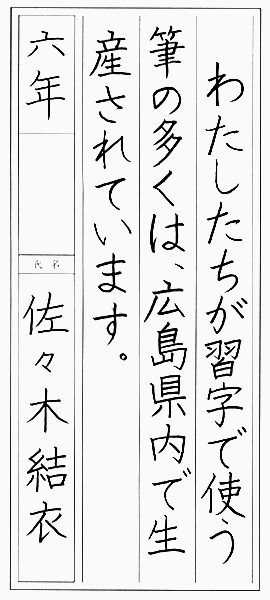 わたしたちが習字で使う
筆の多くは、広島県内で生
産されています。
六年
氏名
佐々木結衣